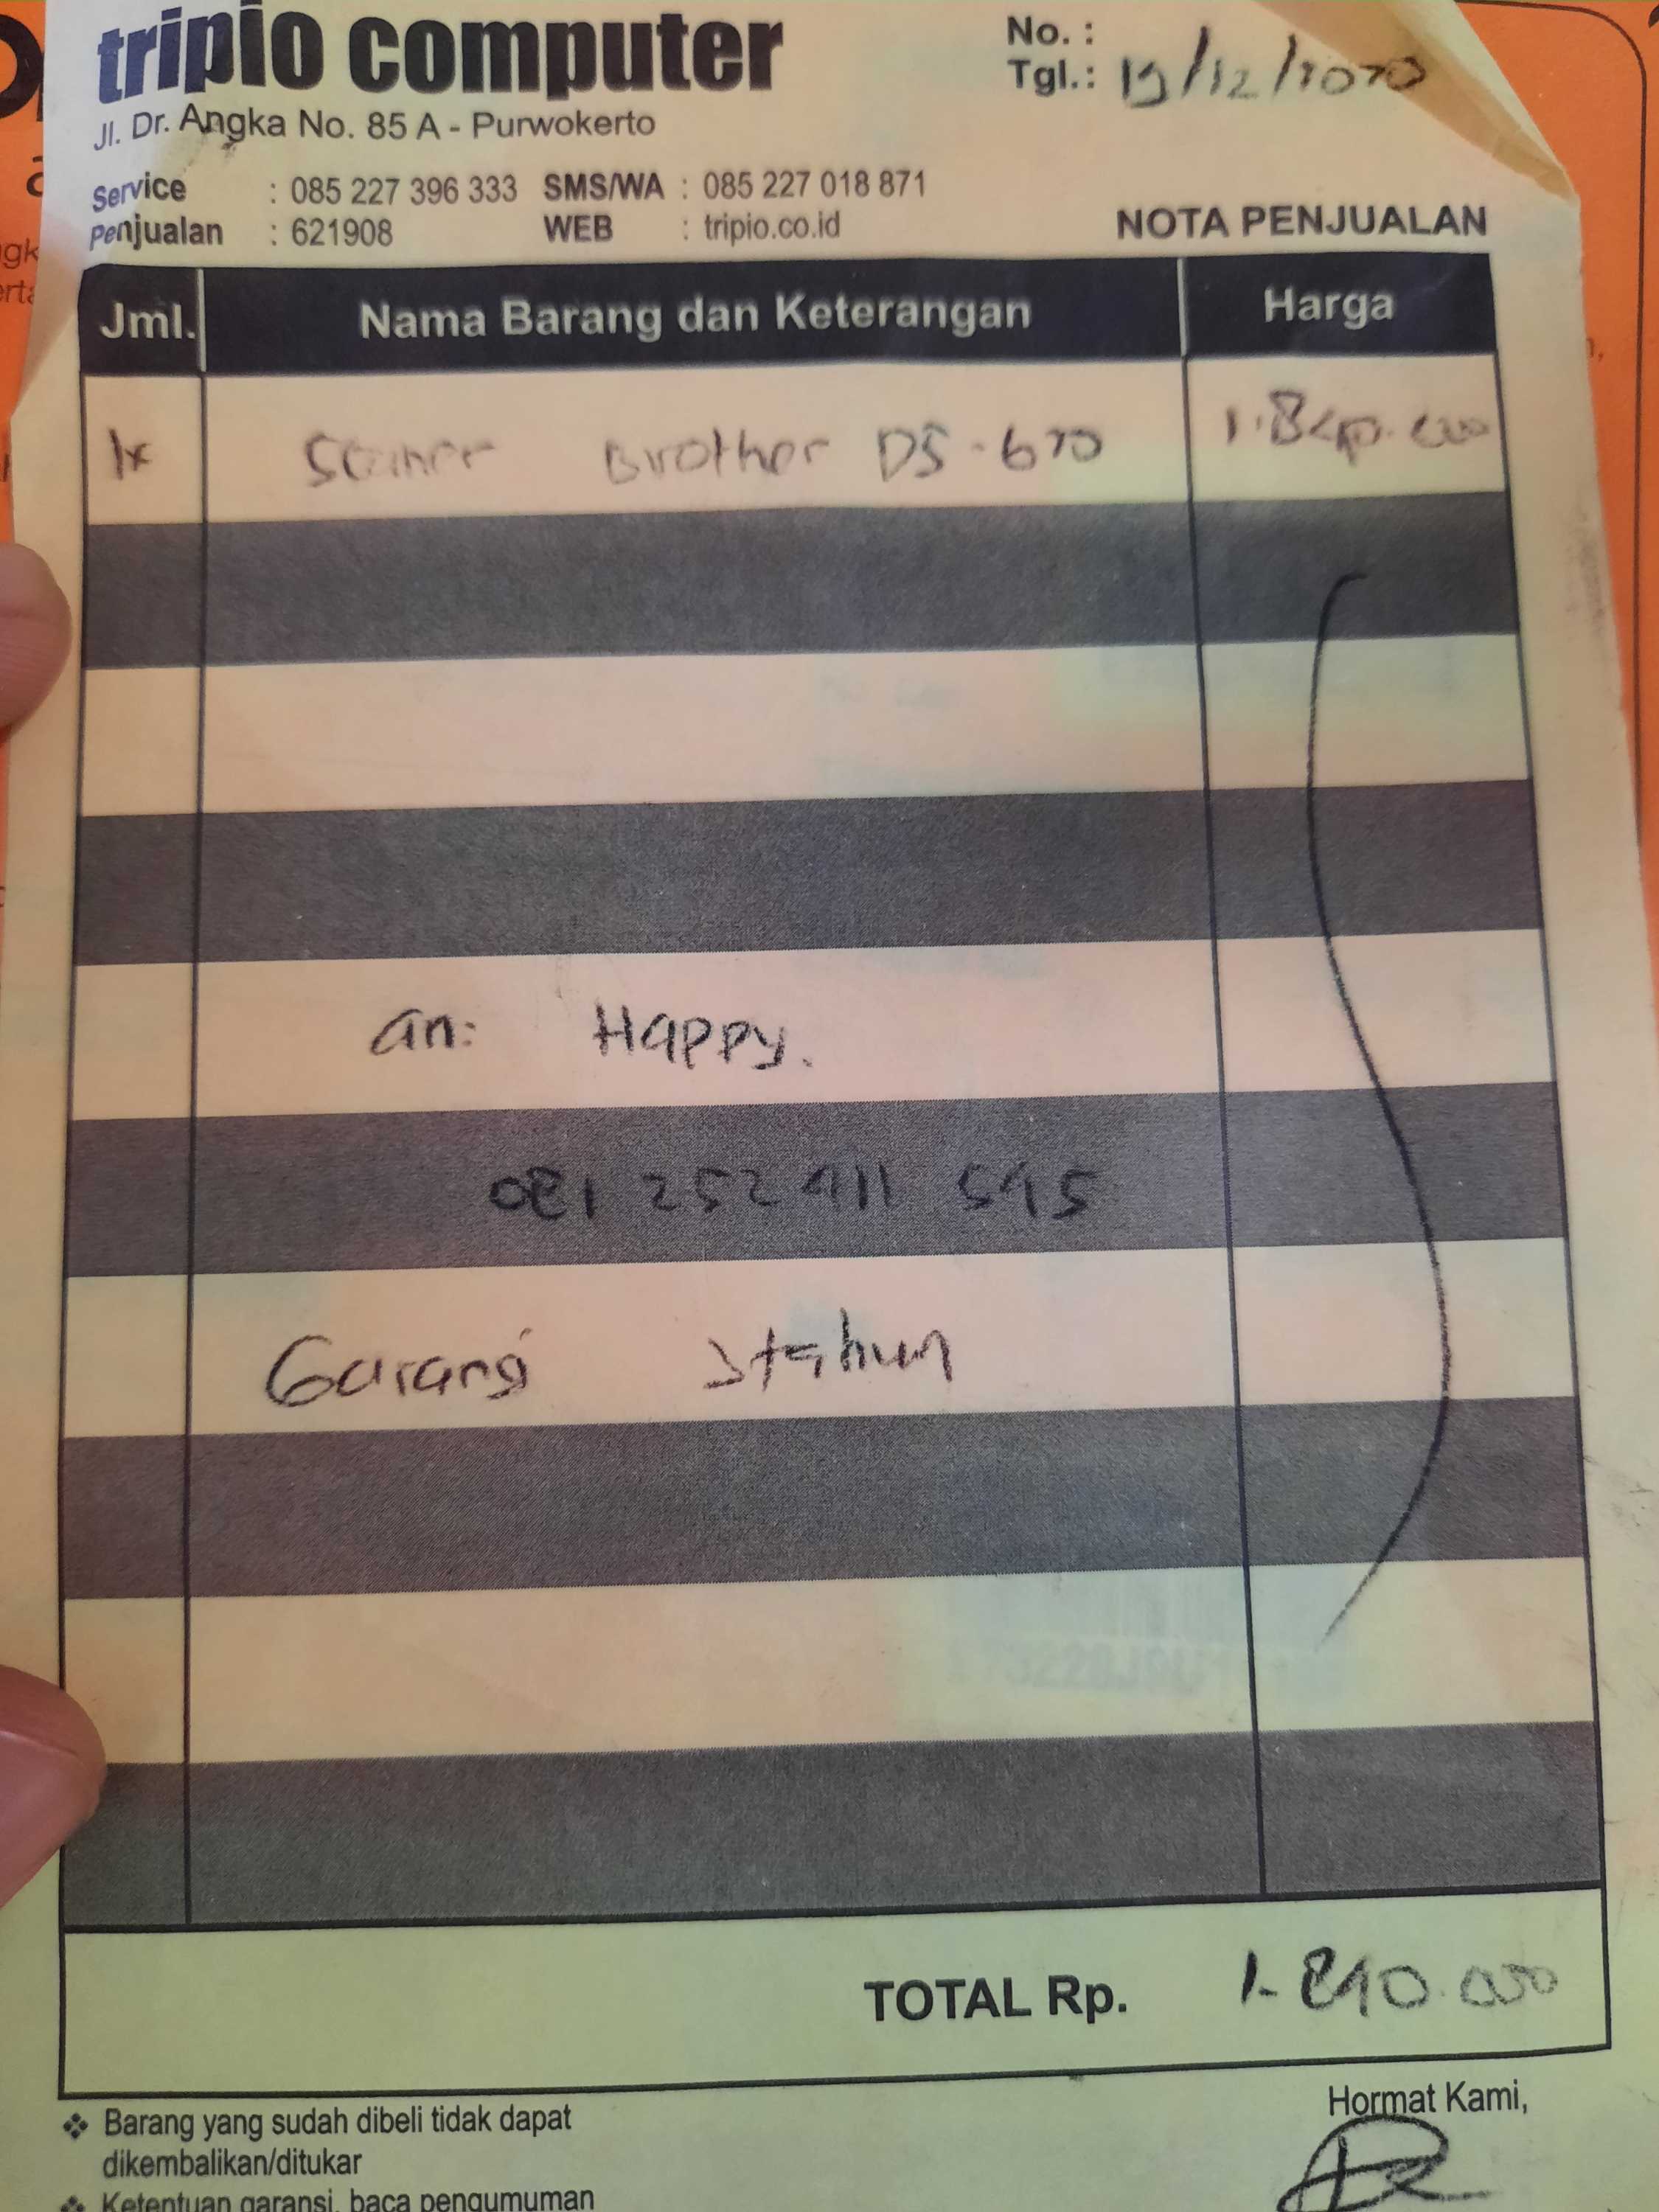 tripio computer
Jl. Dr. Angka No. 85 A - Purwokerto
No. :
Tgl.: 19/12/2020
Service : 085 227 396 333 SMS/WA : 085 227 018 871
Penjualan : 621908 WEB : tripio.co.id
NOTA PENJUALAN
Jml. Nama Barang dan Keterangan Harga
1x Scanner Brother DS-620 1.840.000
an: Happy.
081 252 911 595
Garansi 1 tahun
TOTAL Rp. 1.840.000
Hormat Kami,
❖ Barang yang sudah dibeli tidak dapat
dikembalikan/ditukar
❖ Ketentuan garansi, baca pengumuman